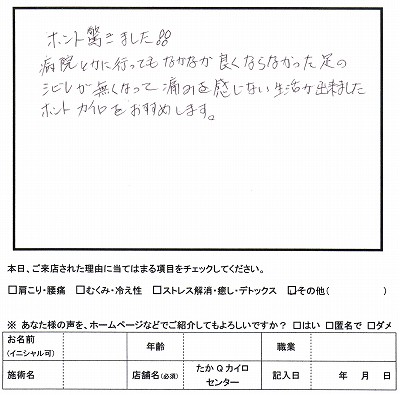 ホント驚きました!!
病院とかに行ってもなかなか良くならなかった足の
シビレが無くなって痛みを感じない生活が出来ました
ホントカイロをおすすめします。
本日、ご来店された理由に当てはまる項目をチェックしてください。
□肩こり・腰痛 □むくみ・冷え性 □ストレス解消・癒し・デトックス ☑その他( )
※ あなた様の声を、ホームページなどでご紹介してもよろしいですか? □はい □匿名で □ダメ
お名前 (イニシャル可) 年齢 職業
施術名 店舗名(必須) たかQカイロセンター 記入日 年 月 日